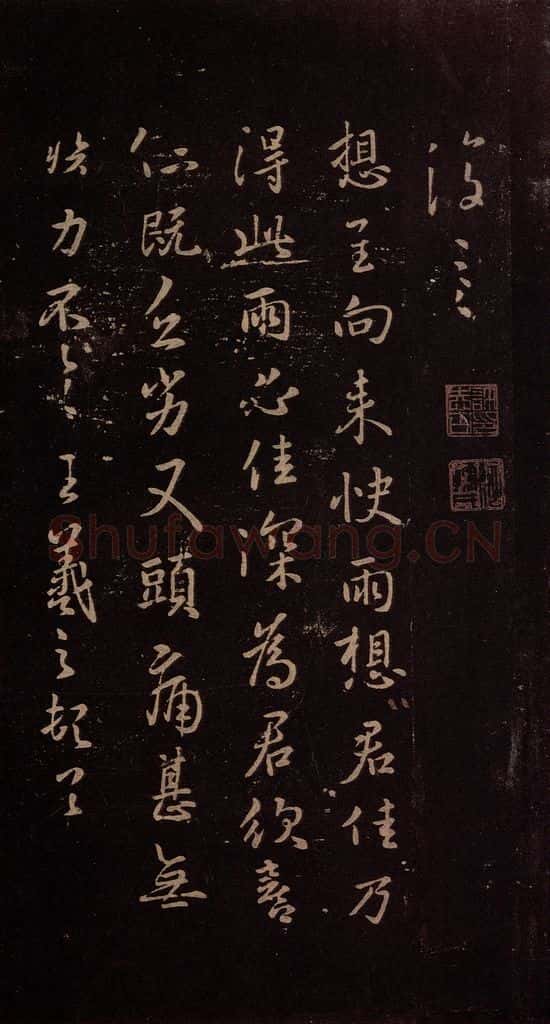 想至向来快雨想君佳乃
得此雨必佳深為君欣喜
既乏劣又頭痛甚無
力不具王羲之頓首
Shufawang.CN